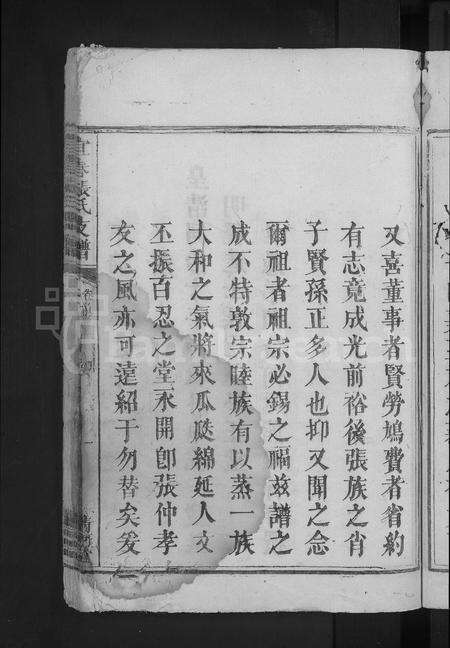 又喜董事者賢勞鳩費者省約
有志竟成光前裕後張族之肖
子賢孫正多人也抑又聞之念
爾祖者祖宗必錫之福茲譜之
成不特敦宗睦族有以蒸一族
大和之氣將來瓜瓞綿延人文
丕振百忍之堂永開卽張仲孝
友之風亦可遠紹于勿替矣爰
宜春張氏支譜